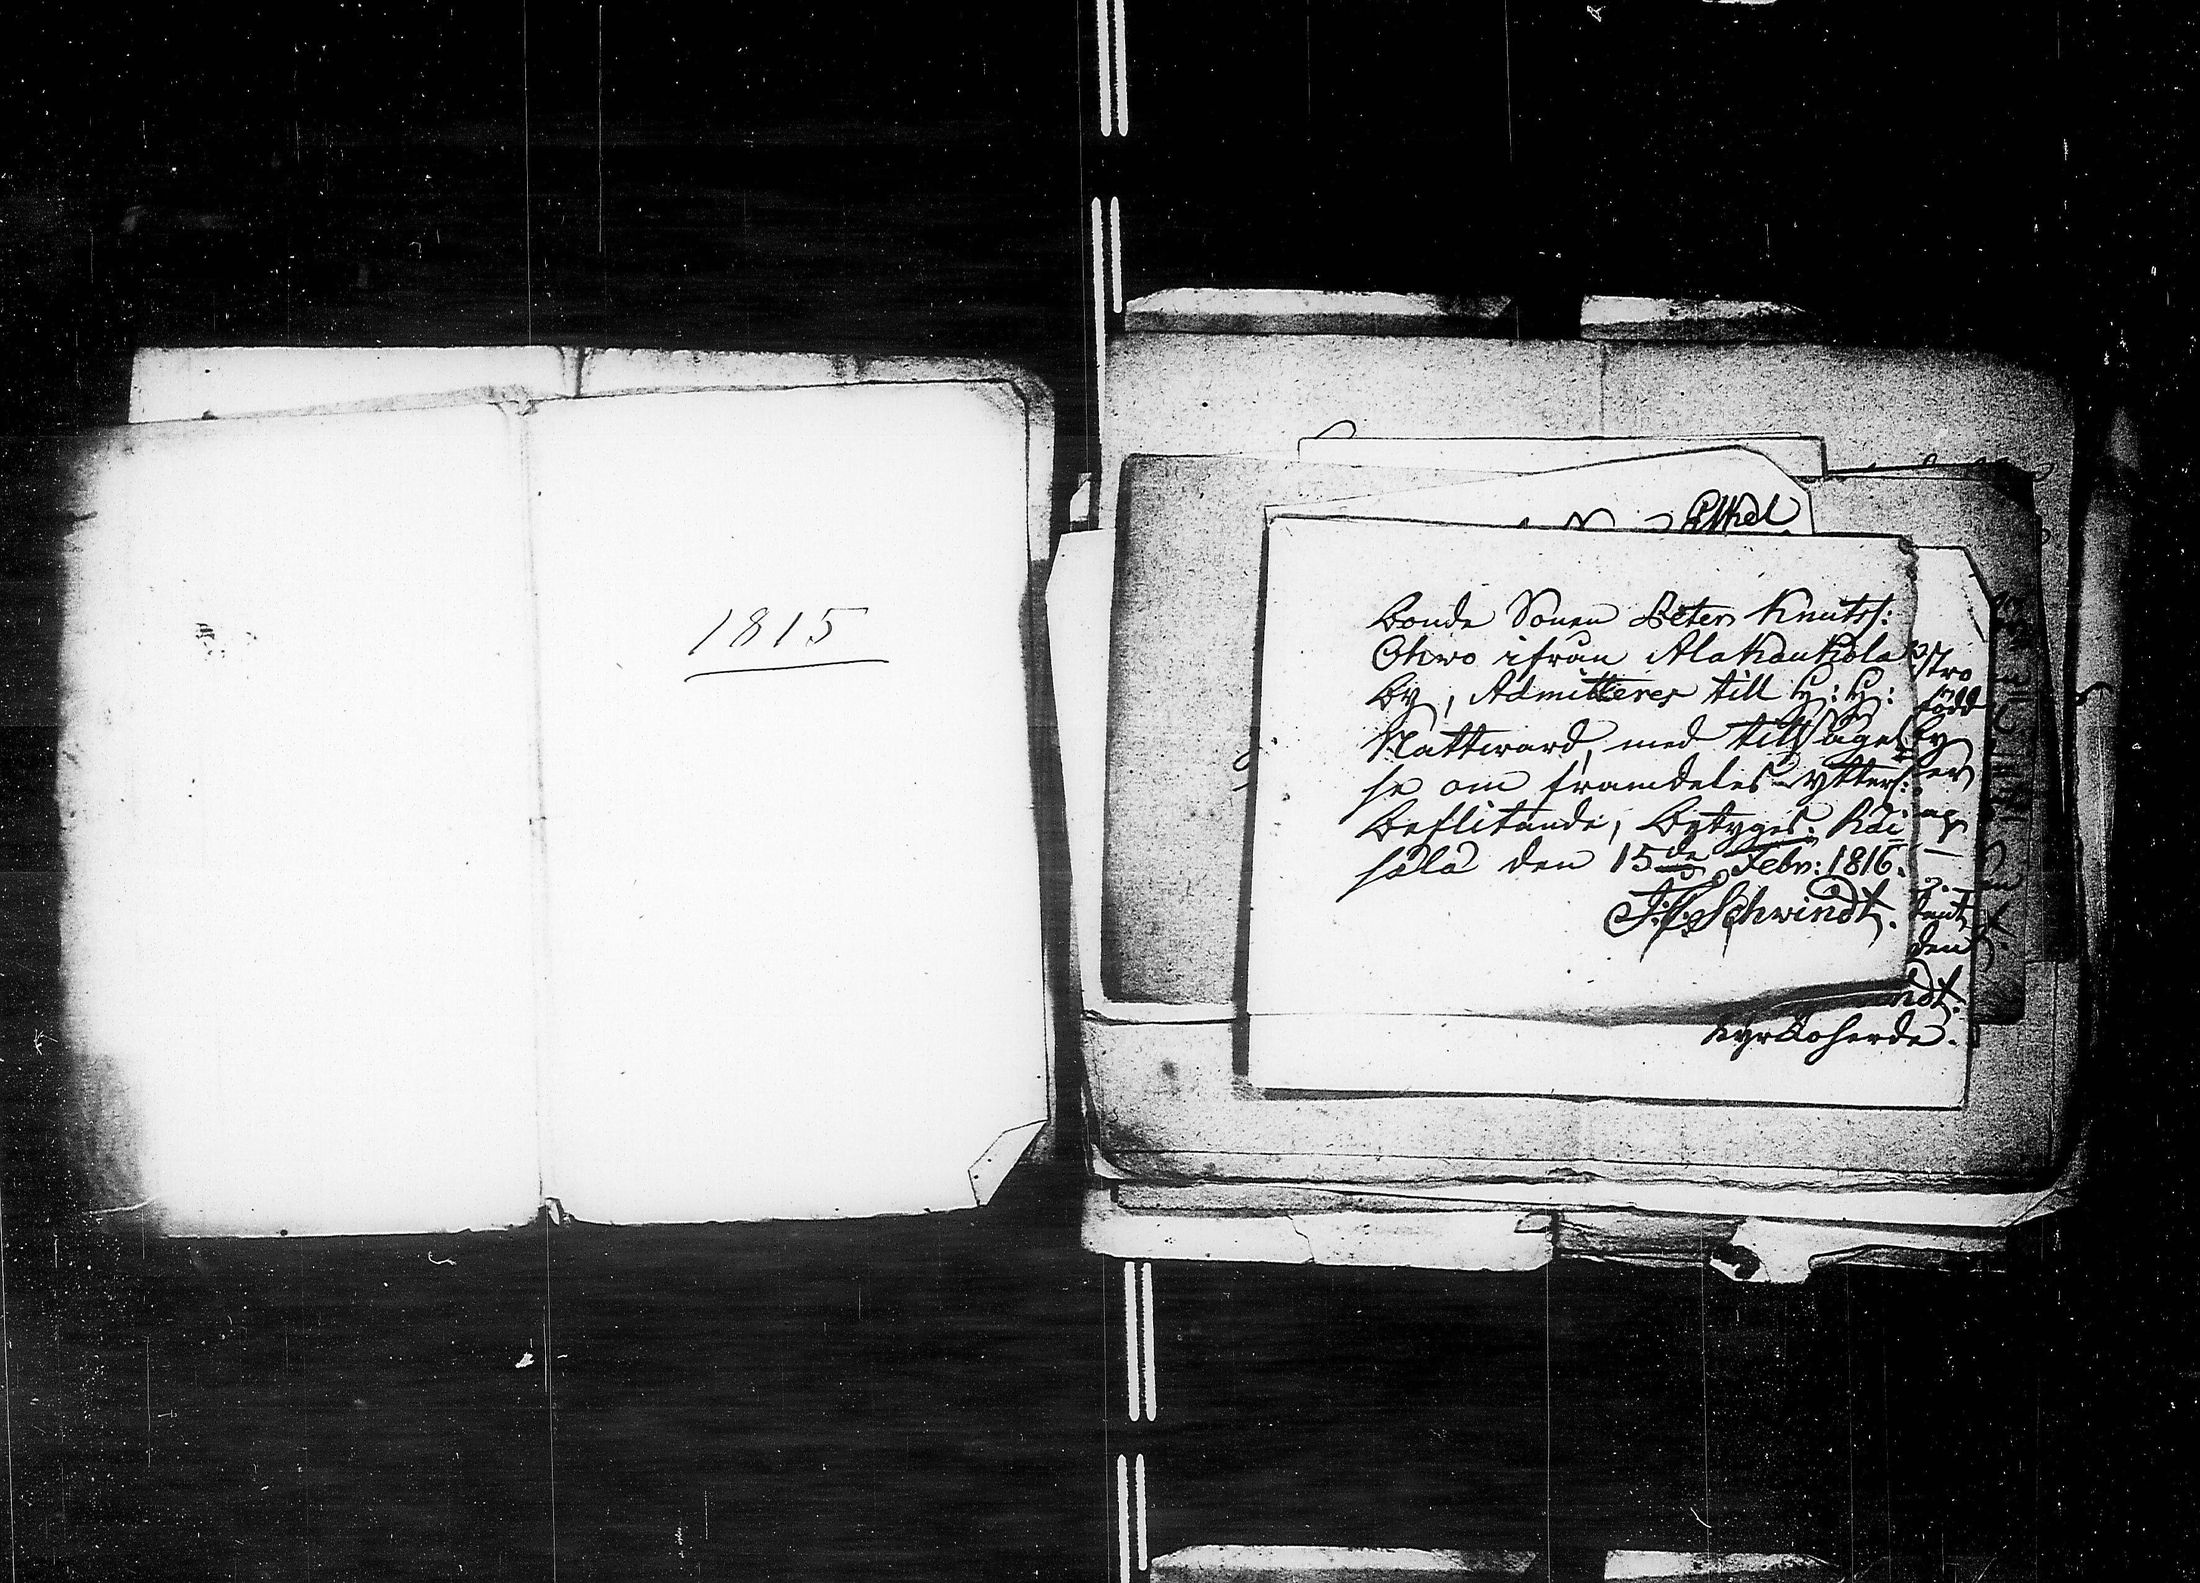 1815
Bonde Sonen Peter Knutss:
Ohwo ifrån Alakaukola
By, Admitteres till H: H:
Nattward, med tillsägel
se om framdeles ytters:
beflitande, betyges. Räi
sälä den 15de Febr: 1816.
Schwindt.
stro
född
By
er
dent
den
indt.
Kyrkoherde.